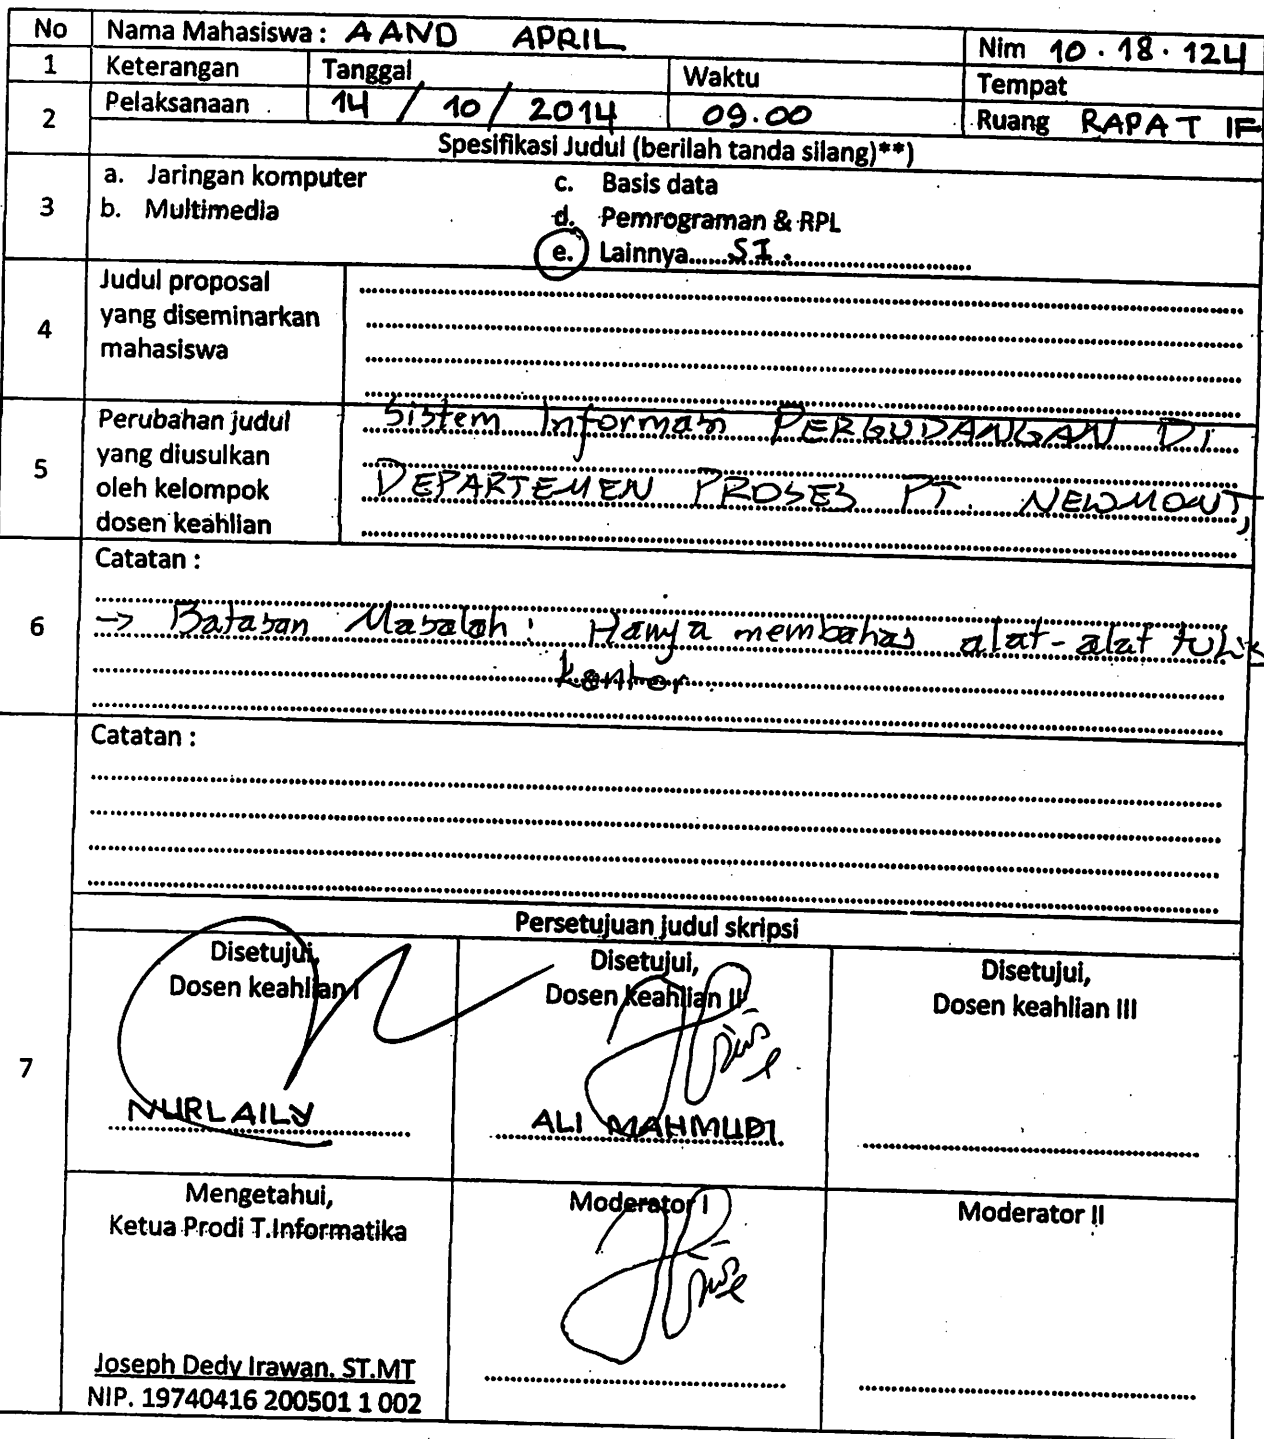 No Nama Mahasiswa : AAND APRIL Nim 10.18.124
1 Keterangan Tanggal Waktu Tempat
2 Pelaksanaan 14 / 10 / 2014 09.00 Ruang RAPAT IF
Spesifikasi Judul (berilah tanda silang)**)
3
a. Jaringan komputer
b. Multimedia
c. Basis data
d. Pemrograman & RPL
e. Lainnya........SI.
4
Judul proposal
yang diseminarkan
mahasiswa
5
Perubahan judul
yang diusulkan
oleh kelompok
dosen keahlian
Sistem Informasi PERGUDANGAN DI
DEPARTEMEN PROSES PT. NEWMONT,
6
Catatan :
-> Batasan Masalah : Hanya membahas alat-alat tulis
kantor.
Catatan :
7
Persetujuan judul skripsi
Disetujui,
Dosen keahlian I
NURLAILY
Disetujui,
Dosen keahlian II
ALI MAHMUDI.
Disetujui,
Dosen keahlian III
Mengetahui,
Ketua Prodi T.Informatika
Joseph Dedy Irawan. ST.MT
NIP. 19740416 200501 1 002
Moderator I
Moderator II